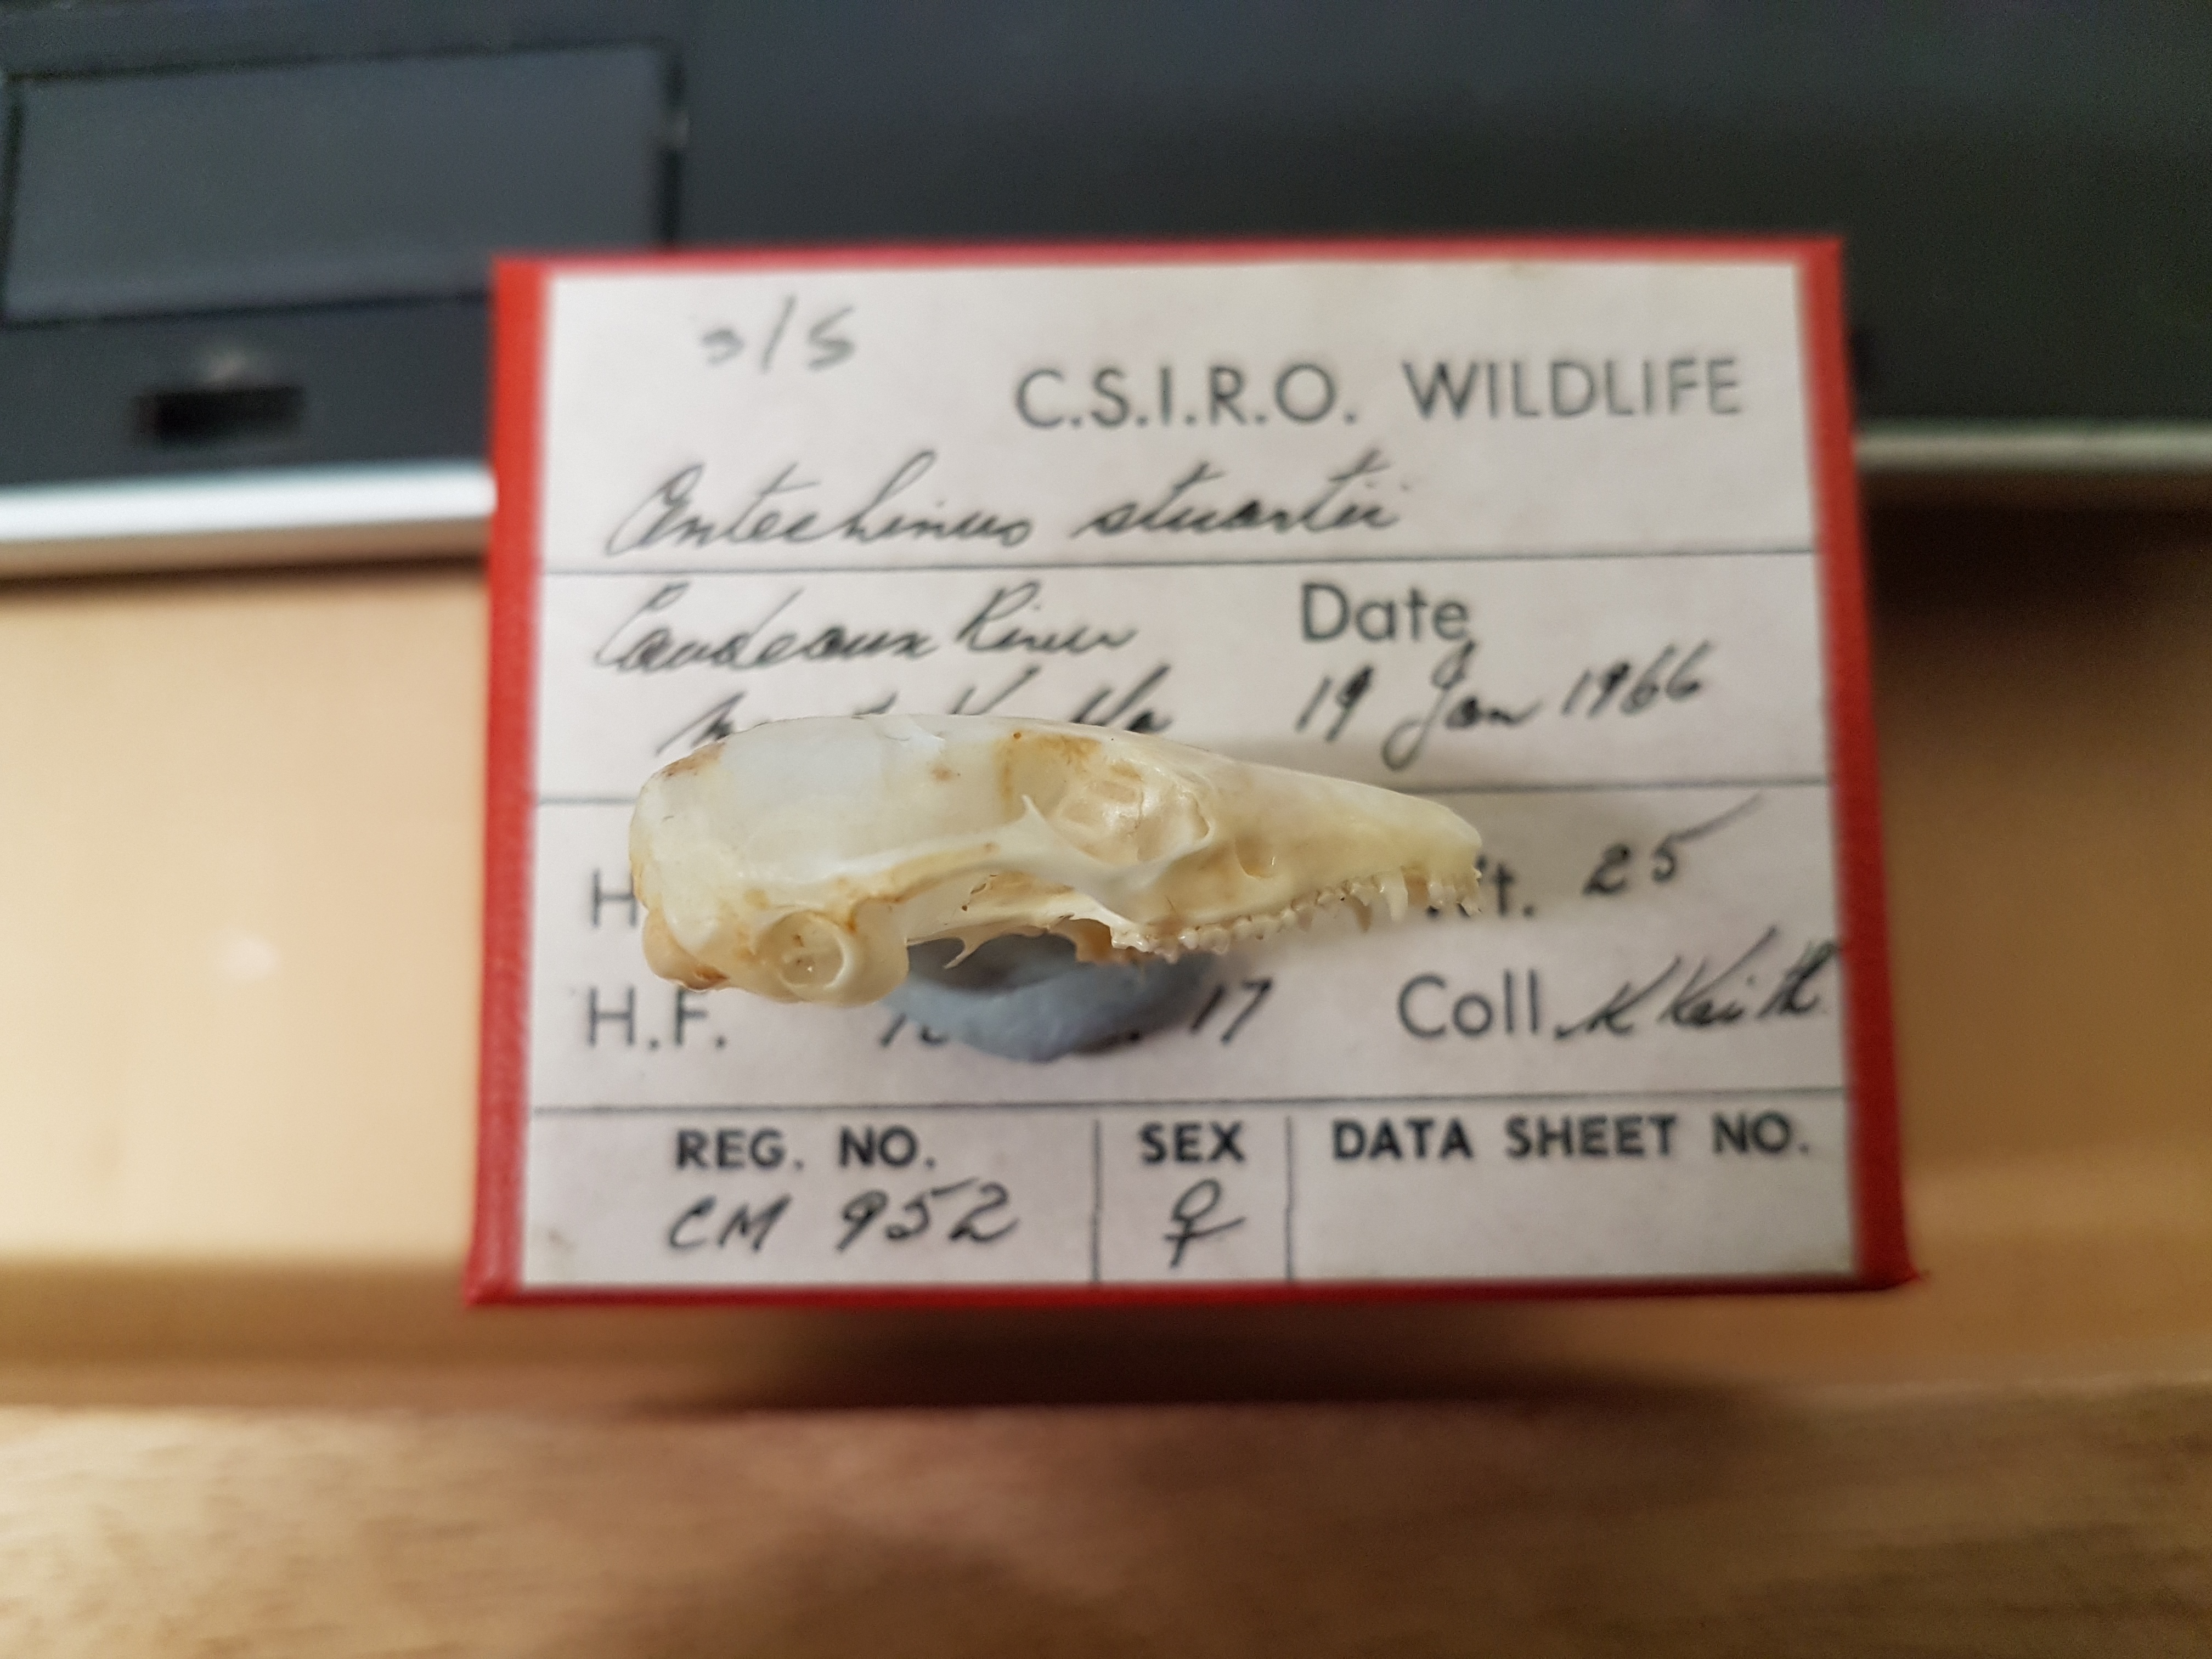 s/s
C.S.I.R.O. WILDLIFE
Antechinus stuartii
River Date
19 Jan 1966
H t. 25
H.F. 17 Coll. K Keith
REG. NO. SEX DATA SHEET NO.
CM 952 ♀